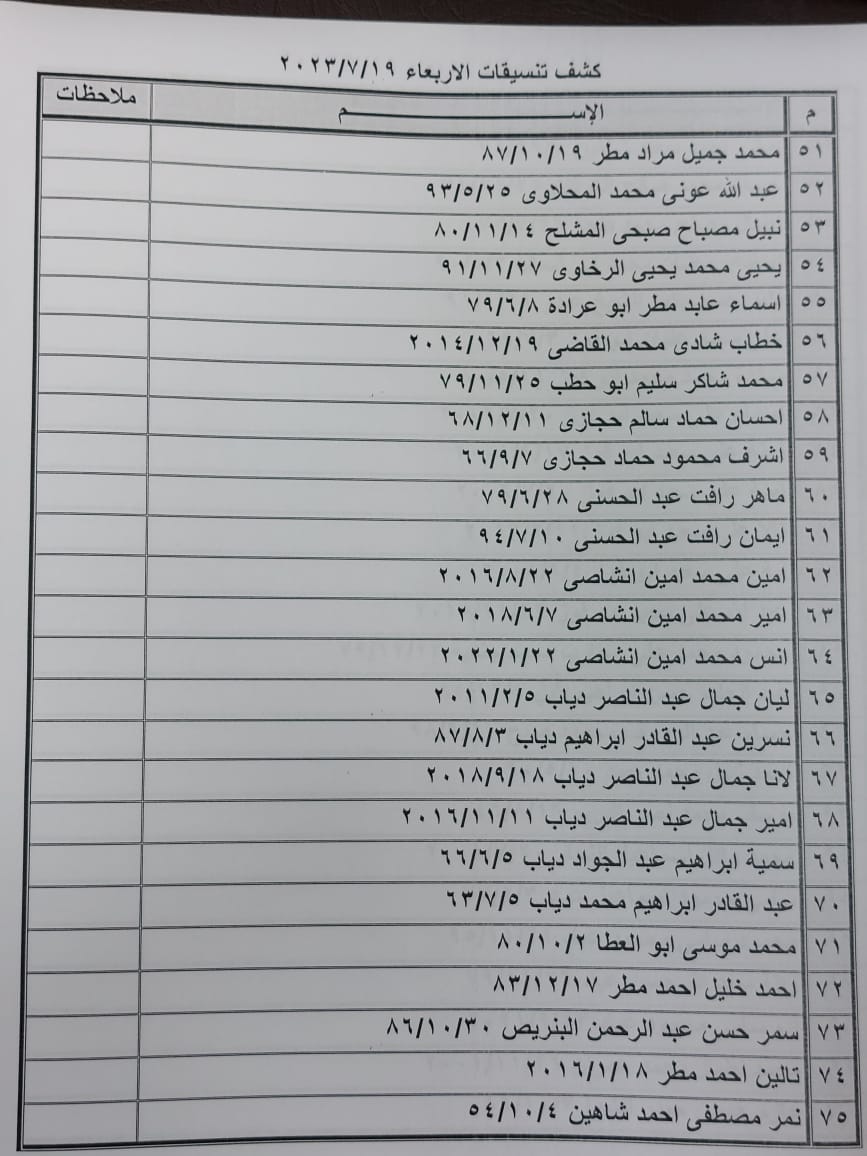 كشف تنسيقات الاربعاء ٢٠٢٣/٧/١٩
م الإســـــــــــــــــــم ملاحظات
٥١ محمد جميل مراد مطر ٨٧/١٠/١٩
٥٢ عبد الله عونى محمد المحلاوى ٩٣/٥/٢٥
٥٣ نبيل مصباح صبحى المشلح ٨٠/١١/١٤
٥٤ يحيى محمد يحيى الرخاوى ٩١/١١/٢٧
٥٥ اسماء عابد مطر ابو عرادة ٧٩/٦/٨
٥٦ خطاب شادى محمد القاضى ٢٠١٤/١٢/١٩
٥٧ محمد شاكر سليم ابو حطب ٧٩/١١/٢٥
٥٨ احسان حماد سالم حجازى ٦٨/١٢/١١
٥٩ اشرف محمود حماد حجازى ٦٦/٩/٧
٦٠ ماهر رافت عبد الحسنى ٧٩/٦/٢٨
٦١ ايمان رافت عبد الحسنى ٩٤/٧/١٠
٦٢ امين محمد امين انشاصى ٢٠١٦/٨/٢٢
٦٣ امير محمد امين انشاصى ٢٠١٨/٦/٧
٦٤ انس محمد امين انشاصى ٢٠٢٢/١/٢٢
٦٥ ليان جمال عبد الناصر دياب ٢٠١١/٢/٥
٦٦ نسرين عبد القادر ابراهيم دياب ٨٧/٨/٣
٦٧ لانا جمال عبد الناصر دياب ٢٠١٨/٩/١٨
٦٨ امير جمال عبد الناصر دياب ٢٠١٦/١١/١١
٦٩ سمية ابراهيم عبد الجواد دياب ٦٦/٦/٥
٧٠ عبد القادر ابراهيم محمد دياب ٦٣/٧/٥
٧١ محمد موسى ابو العطا ٨٠/١٠/٢
٧٢ احمد خليل احمد مطر ٨٣/١٢/١٧
٧٣ سمر حسن عبد الرحمن البنريص ٨٦/١٠/٣٠
٧٤ تالين احمد مطر ٢٠١٦/١/١٨
٧٥ نمر مصطفى احمد شاهين ٥٤/١٠/٤